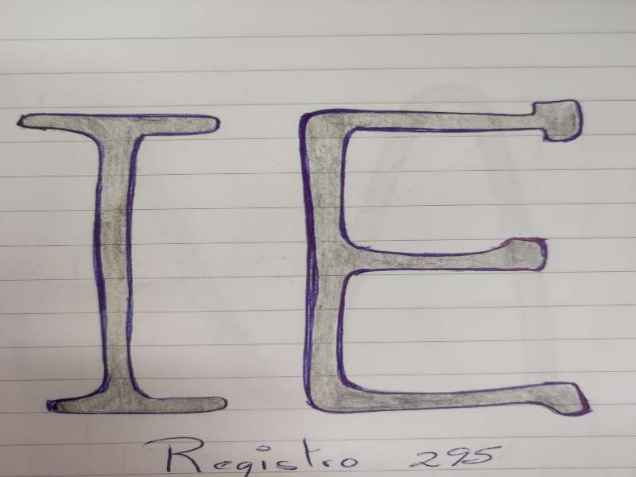 IE
Registro 295